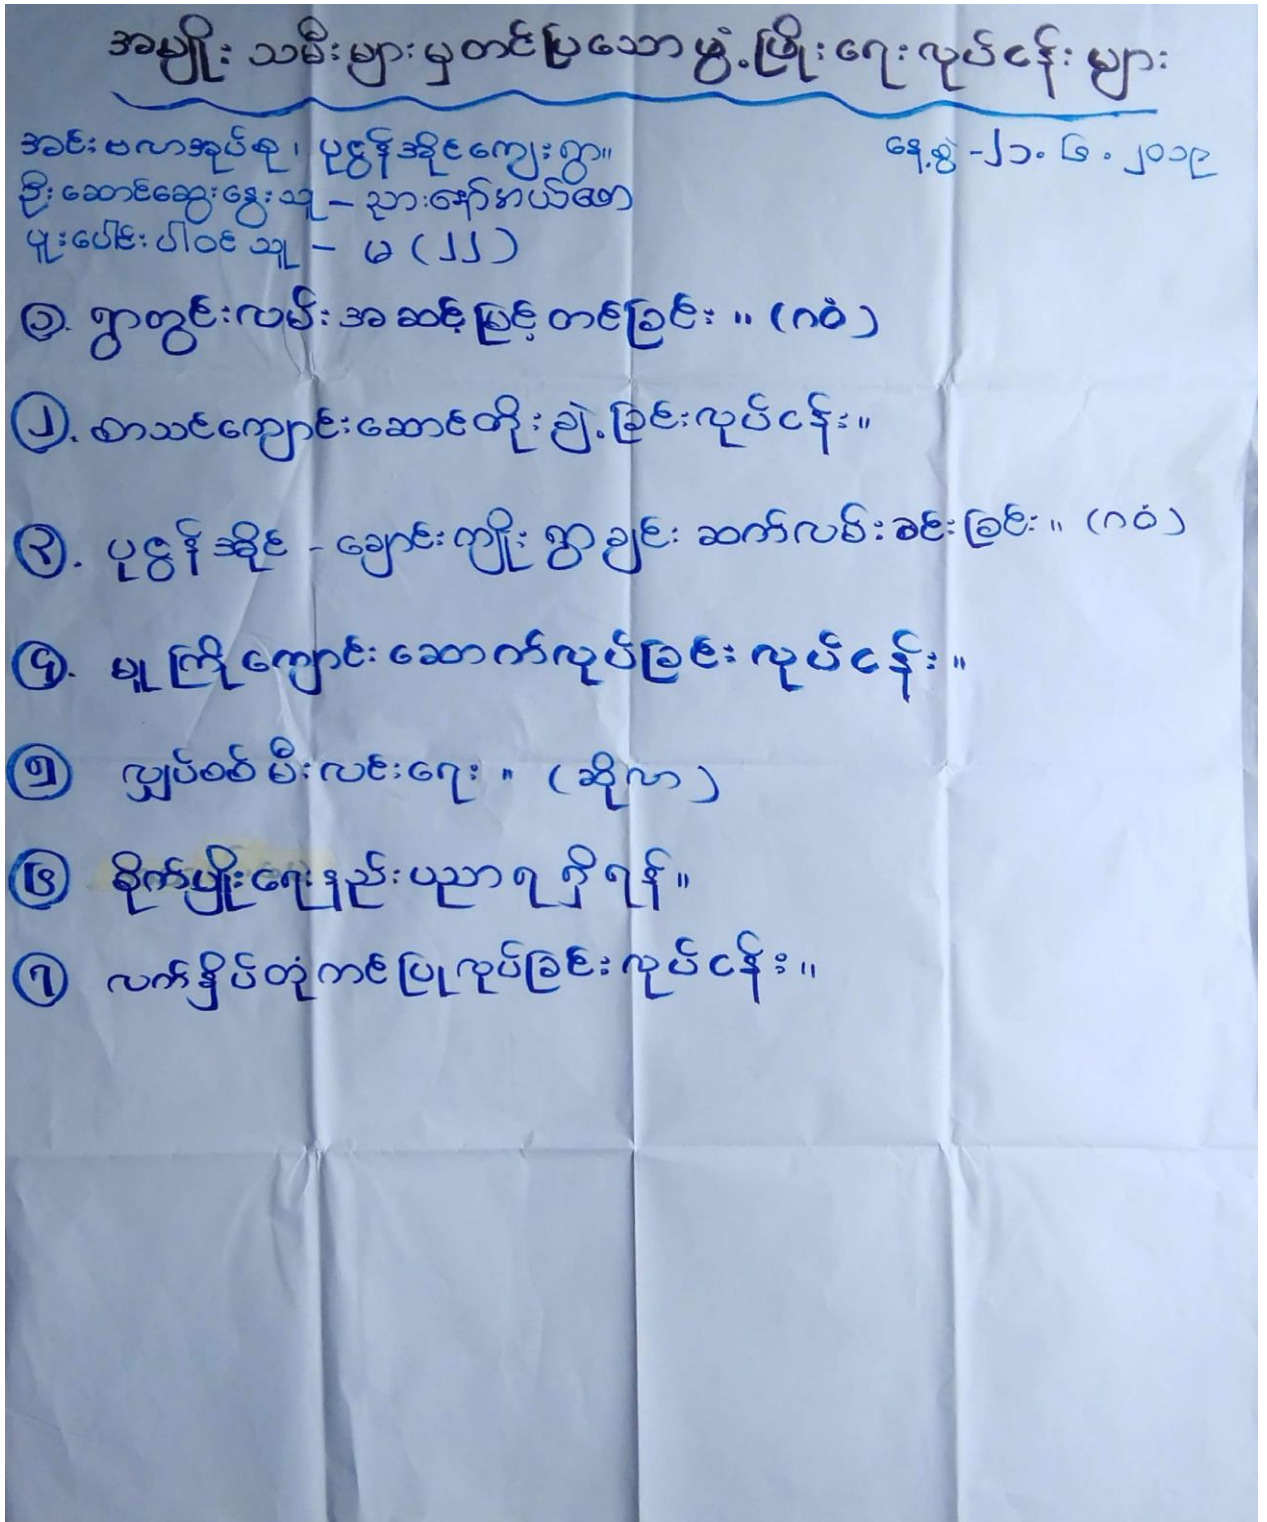 အမျိုးသမီးများမှတင်ပြသောဖွံ့ဖြိုးရေးလုပ်ငန်းများ
အင်းဗလာအုပ်စု၊ ပုဇွန်အိုင်ကျေးရွာ။ နေ့စွဲ -၂၁.၆.၂၀၁၉
ဦးဆောင်ဆွေးနွေးသူ –
ပူးပေါင်းပါဝင်သူ – မ (၂၂)
၁. ရွာတွင်းလမ်းအဆင့်မြှင့်တင်ခြင်း။ (ဂဝံ)
၂. စာသင်ကျောင်းဆောင်တိုးချဲ့ခြင်းလုပ်ငန်း။
၃. ပုဇွန်အိုင် - ချောင်းကျိုး ရွာချင်းဆက်လမ်းခင်းခြင်း။ (ဂဝံ)
၄. မူကြိုကျောင်းဆောက်လုပ်ခြင်းလုပ်ငန်း။
၅ လျှပ်စစ်မီးလင်းရေး။ (ဆိုလာ)
၆ စိုက်ပျိုးရေးနည်းပညာရရှိရန်။
၇ လက်နှိပ်တုံကင်ပြုလုပ်ခြင်းလုပ်ငန်း။